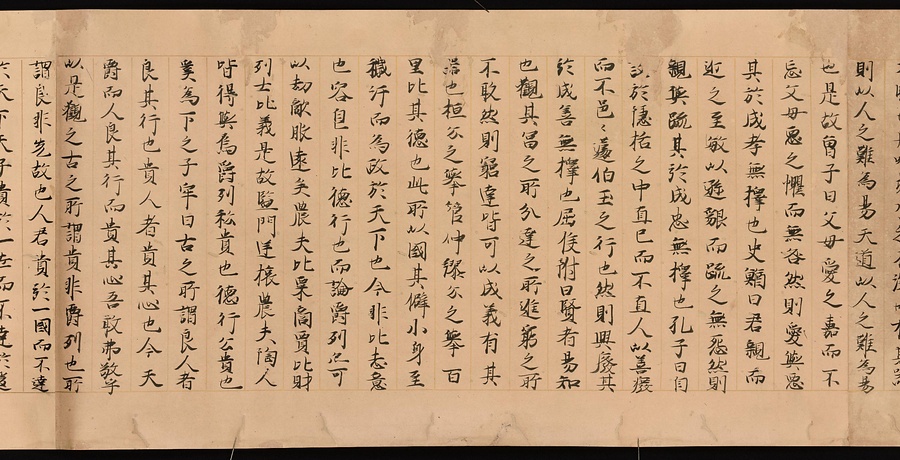 則以人之難為易天道以人之難為易
也是故曽子曰父母愛之嘉而不
忘父母惡之懼而無咎然則愛與惡
其於成孝無擇也史鰌曰君親而
近之至敏以遜貌而疏之無怨然則
親與疏其於成忠無擇也孔子曰自
於檃栝之中直己而不直人以善廢
而不邑〻蘧伯玉之行也然則興廢其
於成善無擇也屈侯附曰賢者易知
也觀其冨之所分達之所進窮之所
不取然則窮達皆可以成義有其
器也桓公之舉管仲繆公之舉百
里比其德也此所以國其僻小身至
穢汙而為政於天下也今非比志意
也容自非比德行也而論爵列然可
以劫敵服遠矣農夫比粟商賈比財
列士比義是故監門逆旅農夫陶人
皆得與焉爵列私貴也德行公貴也
奚為下之子罕曰古之所謂良人者
良其行也貴人者貴其心也今天
爵而人良其行而貴其心吾敢弗敬乎
以是觀之古之所謂貴非爵列也所
謂良非先故也人君貴於一國而不達
於天下天子貴於一世而不達於